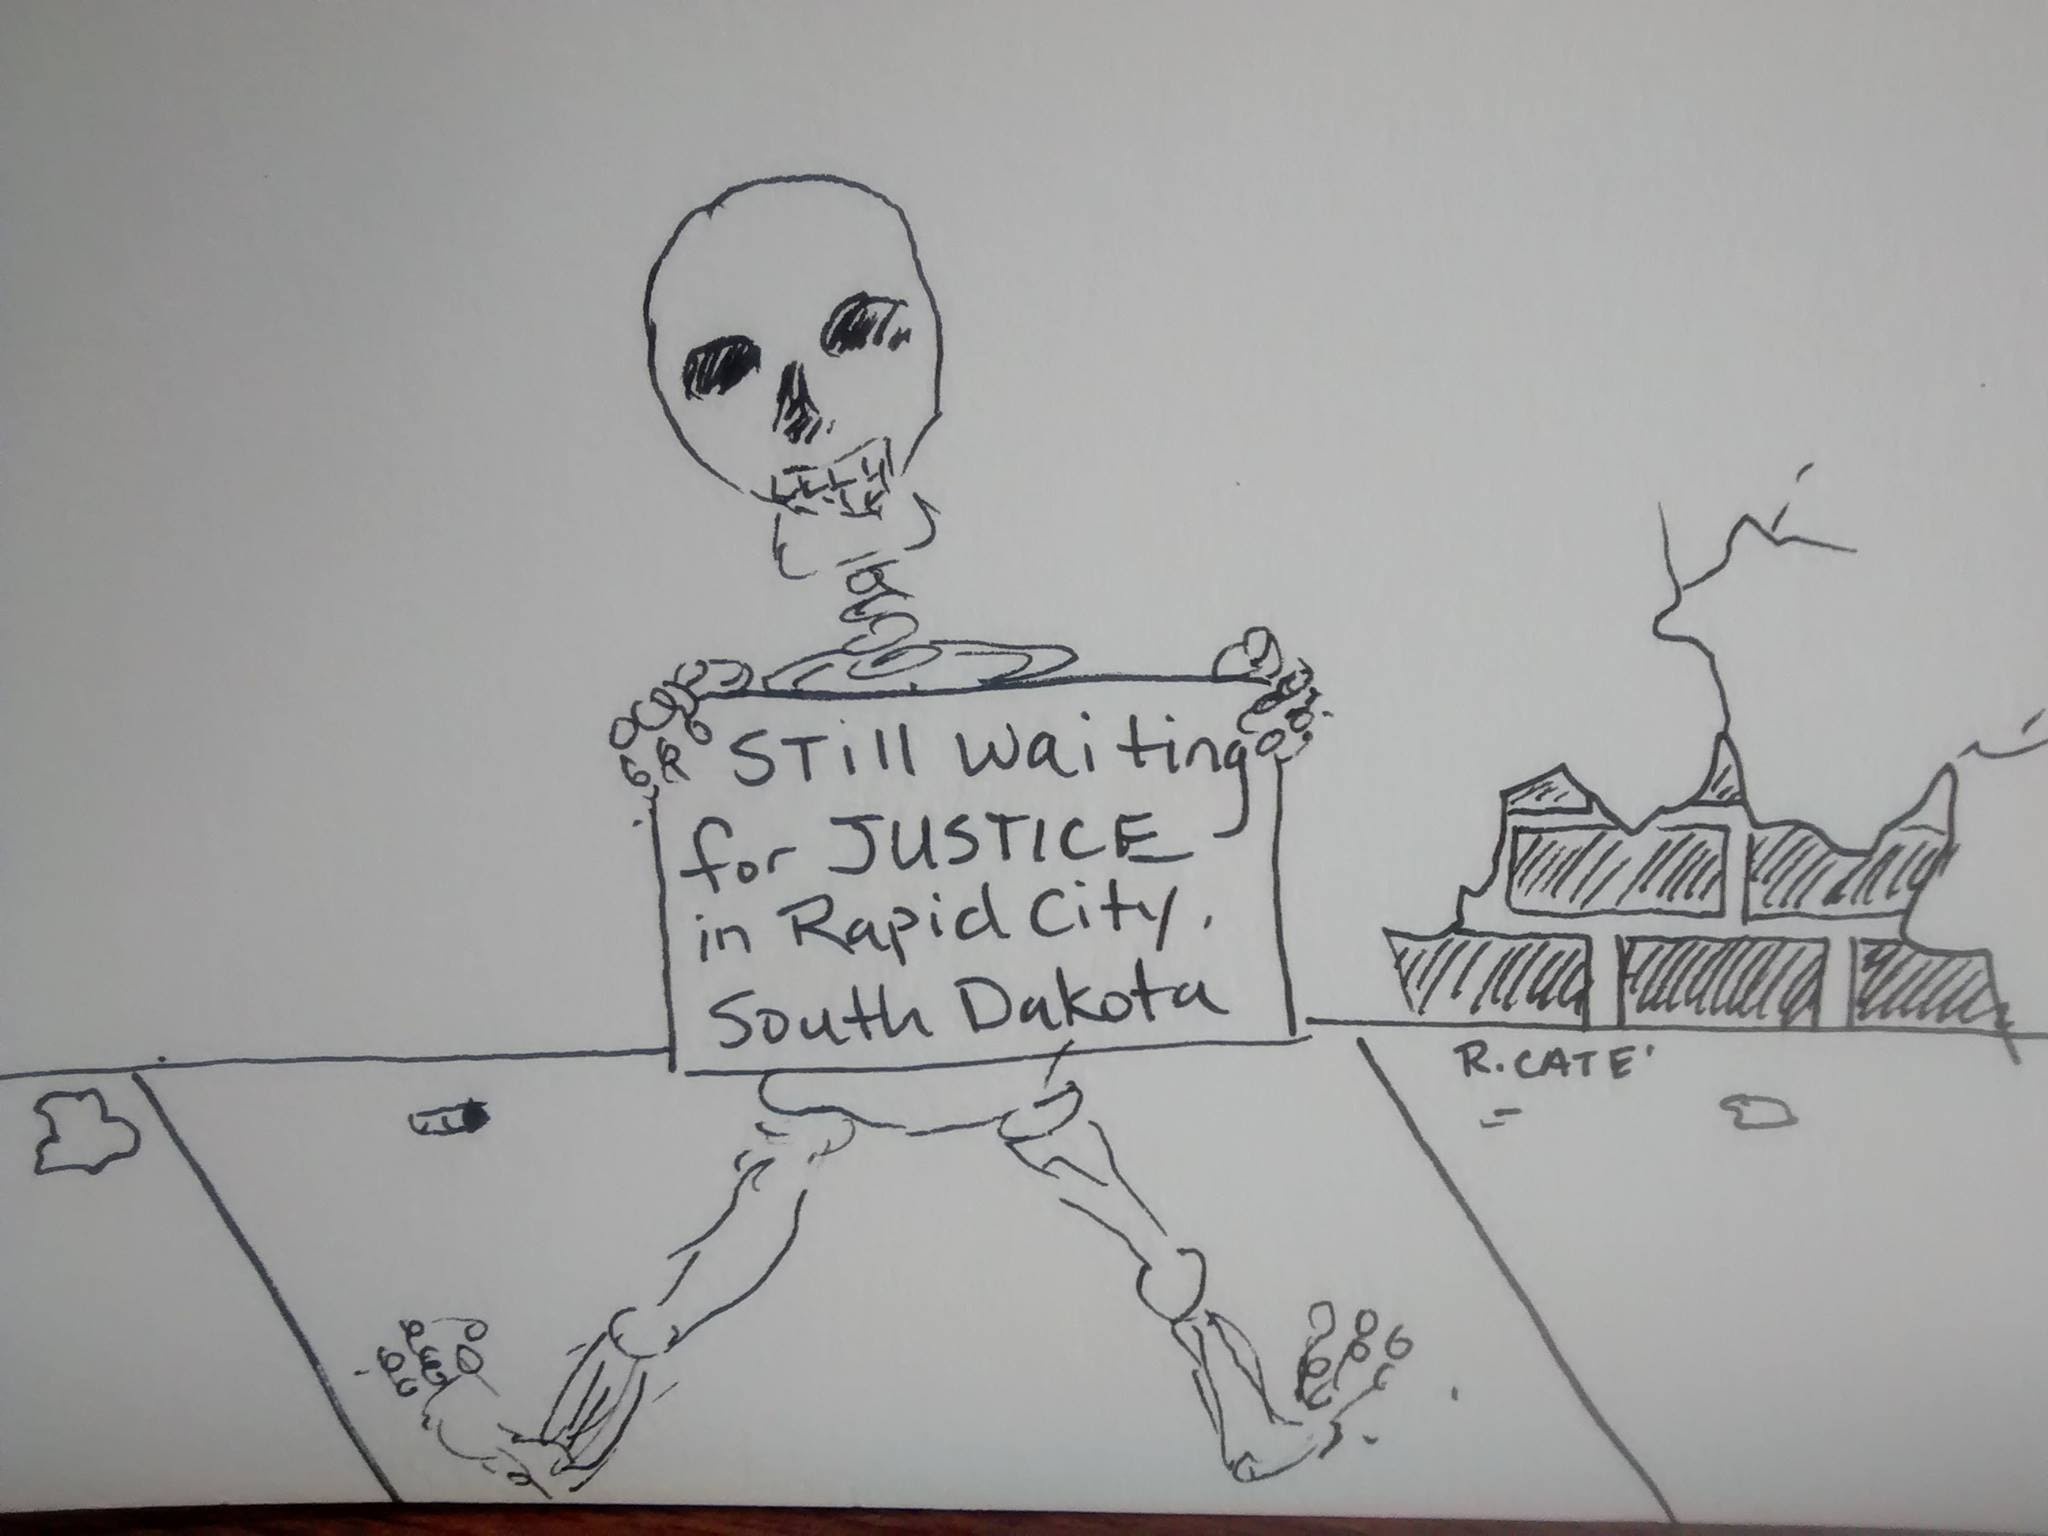 STill waiting
for JUSTICE
in Rapid City.
South Dakota
R. CATE'